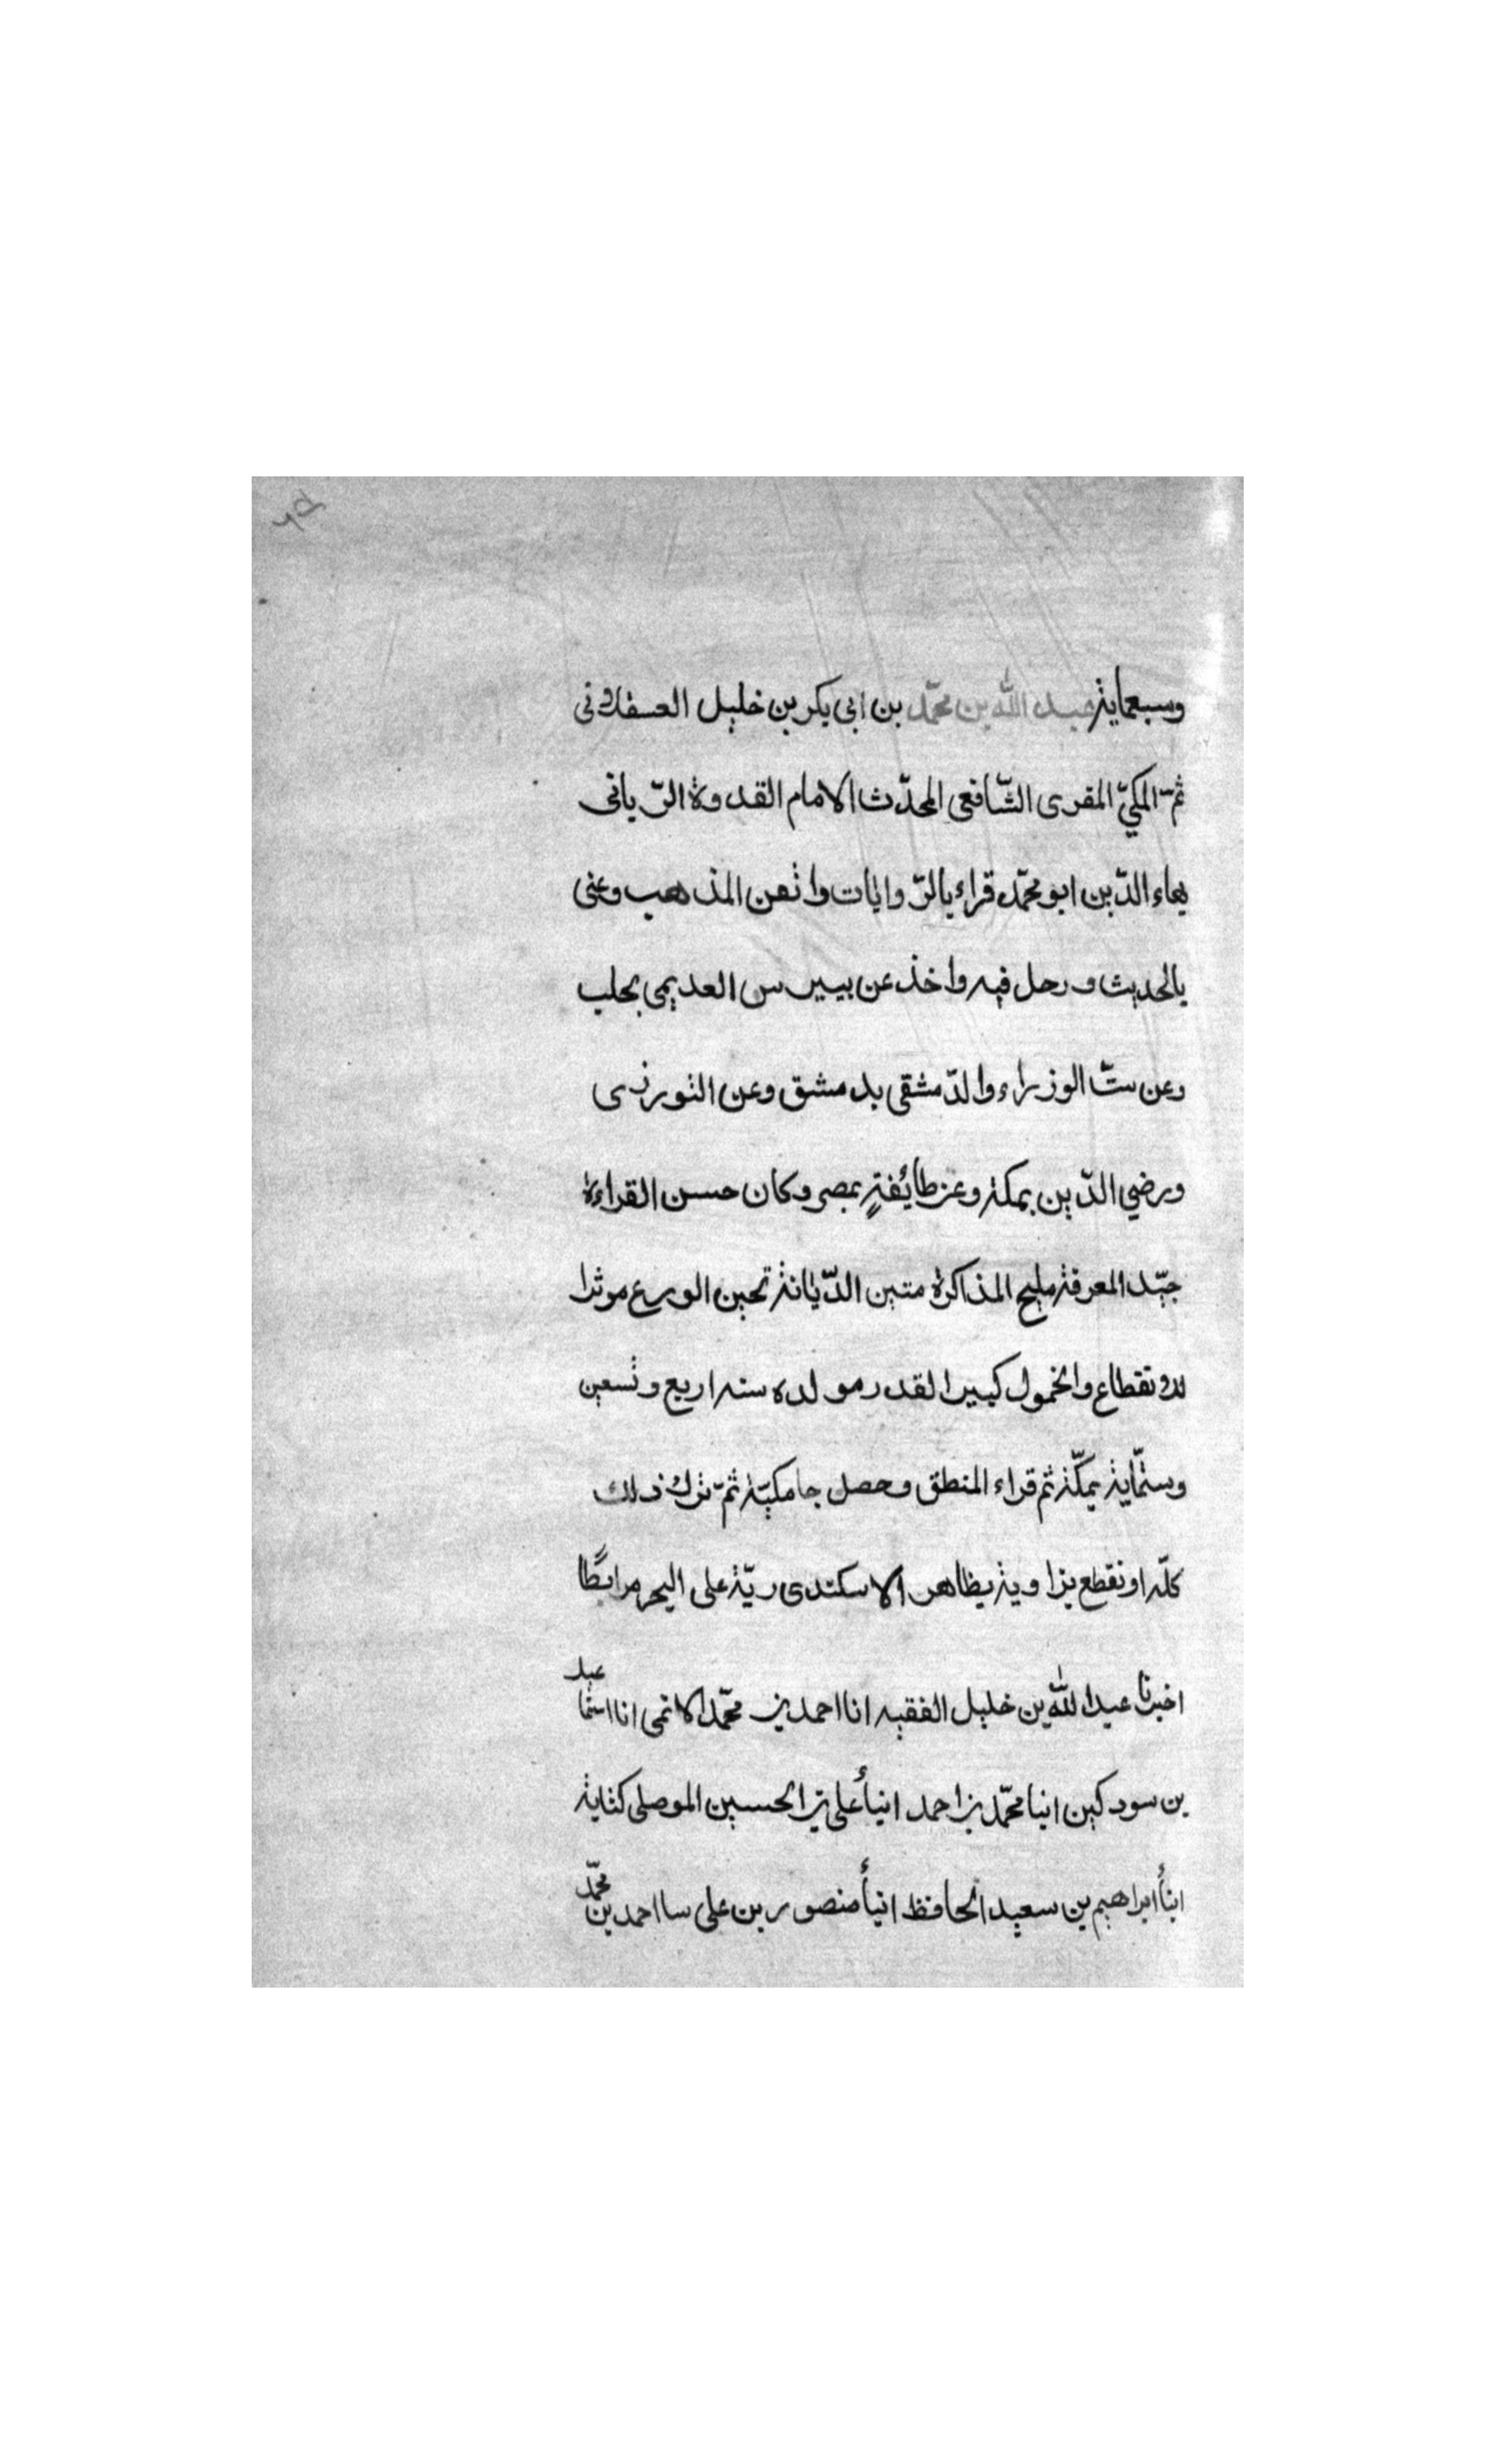 وسبعماية عبد الله بن محمّد بن ابى بكر بن خليل العسقلانى
ثمّ المكيّ المقرى الشّافعى المحدّث الامام القدوة الرّبانى
بهاء الدّين ابو محمّد قراء بالرّوايات واتقن المذهب وعنى
بالحديث ورحل فيه واخذ عن بيبرس العديمى بحلب
وعن ستّ الوزراء والدّمشقى بدمشق وعن التورزى
ورضي الدّين بمكة وعن طائفةٍ بمصر وكان حسن القراءة
جيّد المعرفة مليح المذاكرة متين الدّيانة تحين الورع موثرا
للانقطاع والخمول كبير القدر مولده سنه اربع وتسعين
وستّماية بمكّة ثم قراء المنطق وحصل جامكيّة ثمّ ترك ذلك
كلّه وانقطع بزاوية بظاهر الاسكندريّة على البحر مرابطًا
اخبرنا عبد الله بن خليل الفقيه انا احمد بن محمّد الاتمى انا اسمعيل
بن سودكين انبا محمّد بن احمد انبأ على بن الحسين الموصلى كتابة
انبأ ابراهيم بن سعيد الحافظ انبأ منصور بن على سا احمد بن محمّد